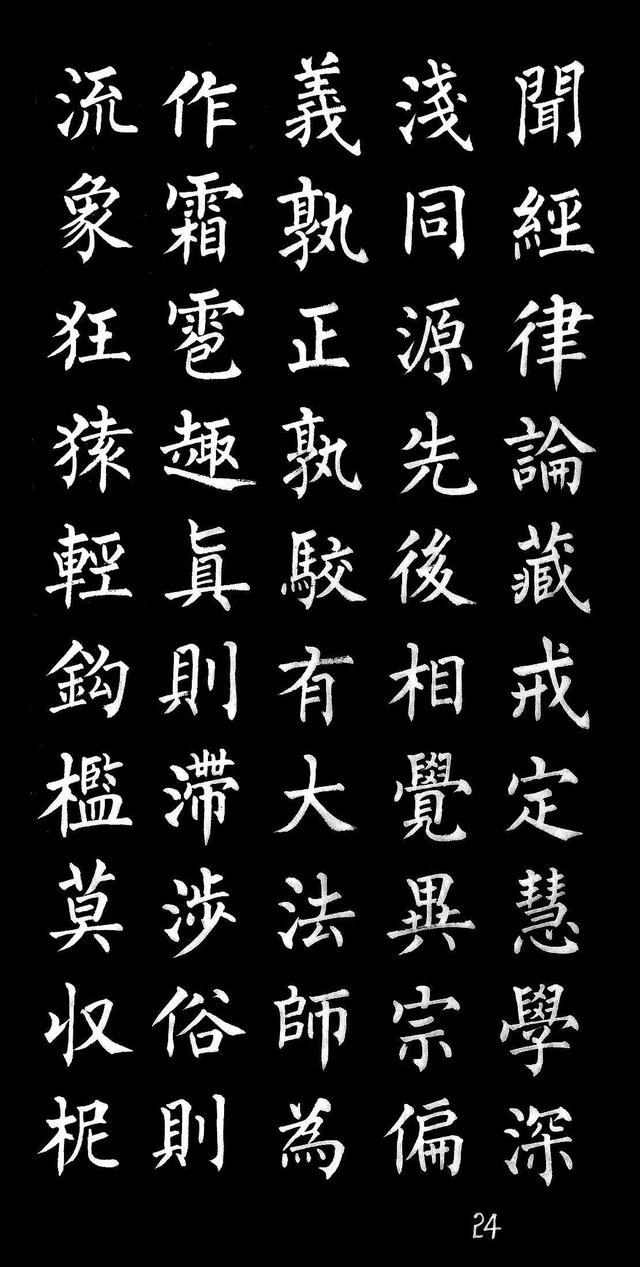 聞經律論藏戒定慧學深
淺同源先後相覺異宗偏
義孰正孰駮有大法師為
作霜雹趣眞則滯涉俗則
流象狂猿輕鈎檻莫収柅
24